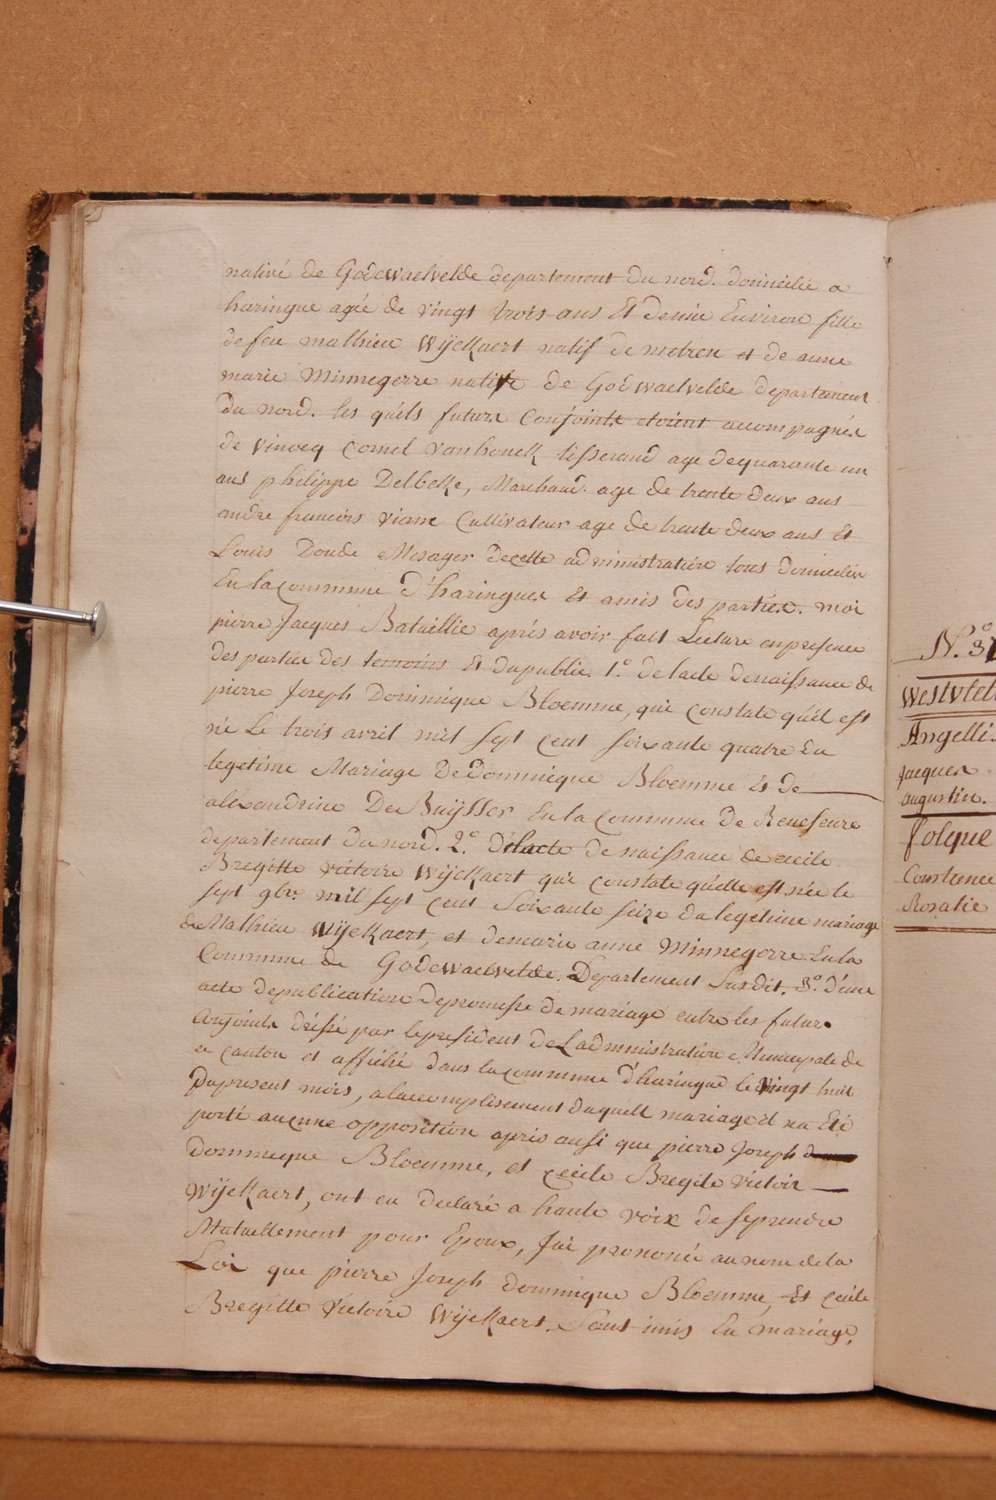 nativé de Godewaelvelde departement du nord. domicilié a
haringue agée de vingt trois ans Et demie Environ fille
de feu mathieu Wÿckaert natif de metren et de anne
marie Minnegerre native de Godwaelvelde departement
du nord. les quéls futurs Conjoints etoient accompagnés
de vinocq Cornel vanhouck tisserand age de quarante un
ans philippe Delbeke, Marchand. age de trente deux ans
andre francois viane Cultivateur age de trente deux ans Et
Louis Doude Mesager de cette administration tous domicilies
En la commune d'haringues Et amis des parties. moi
pierre Jacques Bataillie aprés avoir fait Lecture en presence
des parties des temoins Et du public. 1.º de lacte de naissance de
pierre Joseph Dominique Bloemme, qui constate quéil est
né Le trois avril mil sept cent soixante quatre En
legetime Mariage De Dominique Bloemme Et de
allexandrine De Buÿsser En la Commune de Renescure
departement du nord. 2.º de lacte de naissance de cecile
Bregitte victoire Wÿckaert qui constate quéelle est née le
sept 9bre mil sept cent soixante seize du legetime mariage
de Mathieu Wÿckaert, et de marie anne Minnegerre En la
Commune de Godewaelvelde. Departement susdit. 3.º d'une
acte de publication de promesse de mariage entre les futurs
Conjoints dréssé par le president de Ladministration Municipale de
ce canton et affiché dans la commune d'haringue le vingt huit
Du present mois, a laccomplisement duquell mariage il na Eté
porté aucune opposition apris aussi que pierre Joseph
dominique Bloemme, et cecile Bregite victoir
Wÿckaert, ont eu declaré a haute voix de se prendre
Mutuellement pour Epoux, J'ai prononcé au nom de la
Loi que pierre Joseph dominique Bloemme, Et cecile
Bregitte victoire Wÿckaert. Sont unis En mariage,
N.º 31
Angelli
Jacques
augustin.
folque
Constance
Rosalie